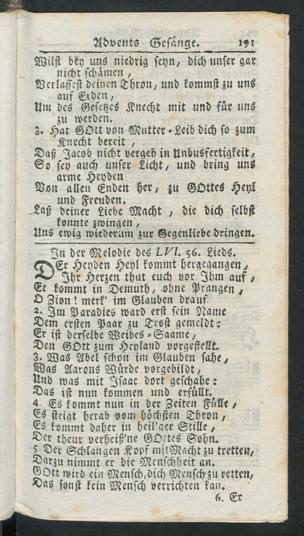 Advents Gesänge. 191
Wilst bey uns niedrig seyn, dich unser gar
nicht schämen,
Verlassest deinen Thron, und kommst zu uns
auf Erden,
Um des Gesetzes Knecht mit und für uns
zu werden.
3. Hat GOtt von Mutter-Leib dich so zum
Knecht bereit,
Daß Jacob nicht vergeh in Unbusfertigkeit,
So sey auch unser Licht, und bring uns
arme Heyden
Von allen Enden her, zu GOttes Heyl
und Freuden.
Laß deiner Liebe Macht, die dich selbst
konnte zwingen,
Uns ewig wiederum zur Gegenliebe dringen.
In der Melodie des LVI. 56. Lieds.
DEr Heyden Heyl kommt hergegangen,
Ihr Herzen thut euch vor Ihm auf,
Er kommt in Demuth, ohne Prangen,
O Zion! merk' im Glauben drauf.
2. Im Paradies ward erst sein Name
Dem ersten Paar zu Trost gemeldt:
Er ist derselbe Weibes-Saame,
Den GOtt zum Heyland vorgestellt.
3. Was Abel schon im Glauben sahe,
Was Aarons Würde vorgebildt,
Und was mit Isaac dort geschahe:
Das ist nun kommen und erfüllt.
4 Es kommt nun in der Zeiten Fülle,
Es steigt herab vom höchsten Thron,
Es kommt daher in heil'ger Stille,
Der theur verheiß'ne GOttes Sohn.
5 Der Schlangen Kopf mit Macht zu tretten,
Darzu nimmt er die Menschheit an.
GOtt wird ein Mensch, dich Mensch zu retten,
Das sonst kein Mensch verrichten kan.
6. Er